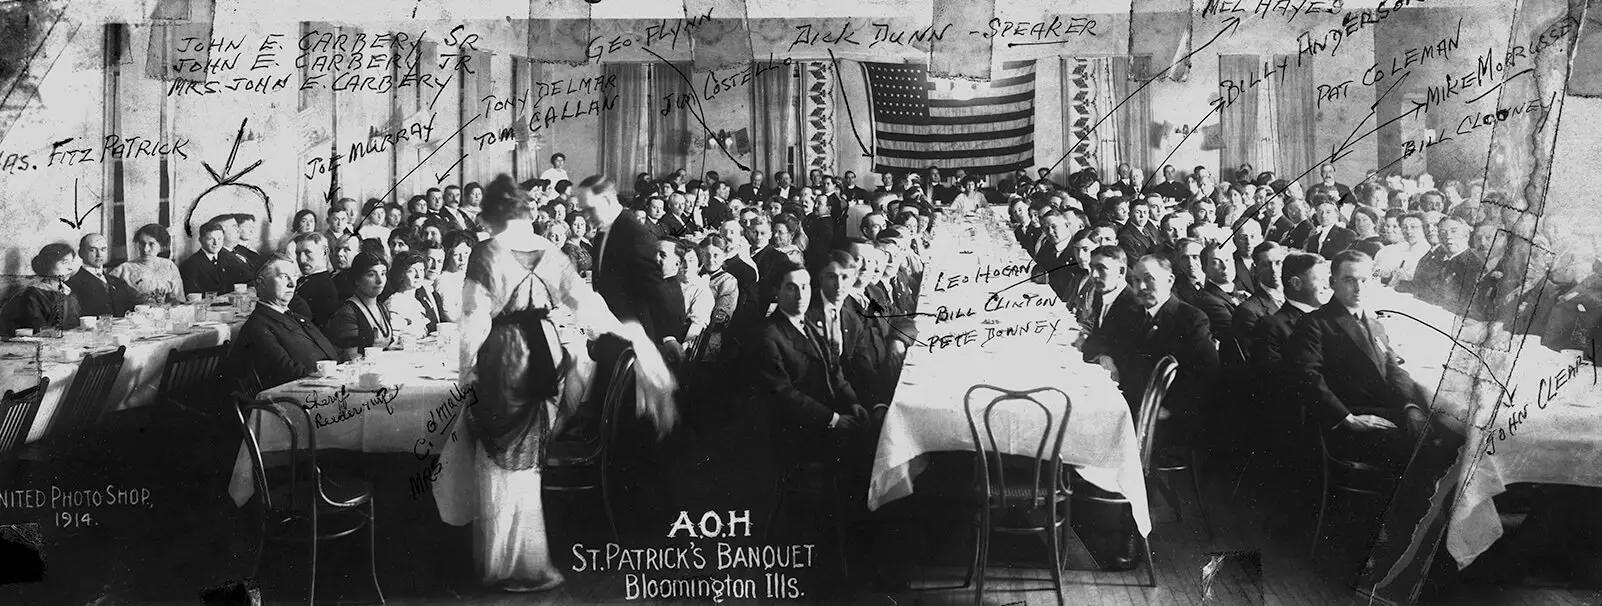 JOHN E. CARBERY SR
JOHN E. CARBERY JR
MRS. JOHN E. CARBERY
GEO. FLYNN
DICK DUNN - SPEAKER
MEL HAYES
BILLY ANDERSON
PAT COLEMAN
MIKE MORRISSEY
BILL CLOONEY
JIM COSTELLO
TONY DELMAR
TOM CALLAN
JOE MURRAY
FITZPATRICK
LEO HOGAN
BILL CLINTON
PETE DOWNEY
JOHN CLEARY
Sheriff
Reeder & wife
MRS. C. O'Malley
UNITED PHOTO SHOP,
1914.
A.O.H
ST. PATRICK'S BANQUET
Bloomington Ills.